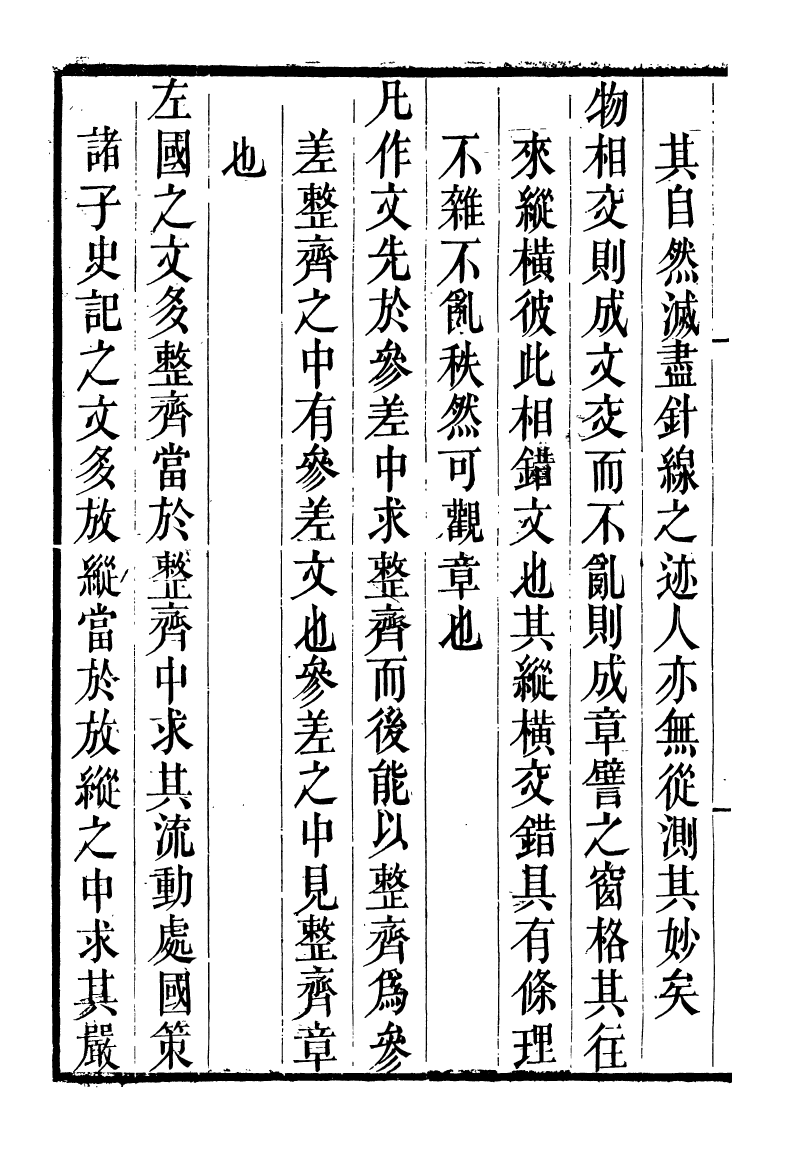 其自然滅盡針線之迹人亦無從測其妙矣
物相交則成文交而不亂則成章譬之窗格其往
來縱橫彼此相錯文也其縱橫交錯具有條理
不雜不亂秩然可觀章也
凡作文先於參差中求整齊而後能以整齊爲參
差整齊之中有參差文也參差之中見整齊章
也
左國之文多整齊當於整齊中求其流動處國策
諸子史記之文多放縱當於放縱之中求其嚴